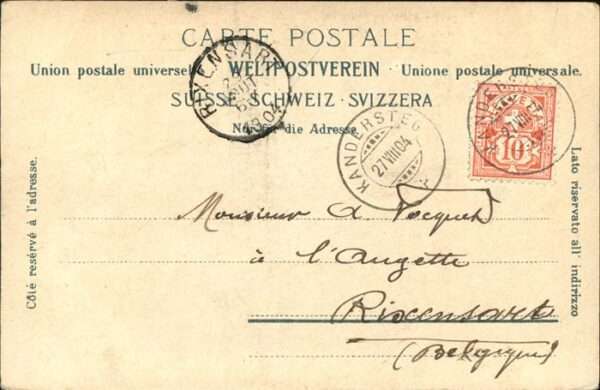 CARTE POSTALE
Union postale universelle. WELTPOSTVEREIN Unione postale universale.
SUISSE SCHWEIZ SVIZZERA
Nur für die Adresse
RIXENSART
1904
KANDERSTEG
27 VIII 04
KANDERSTEG
27 VIII
10
Côté reservé à l'adresse.
Lato riservato all' indirizzo
Monsieur A.
à l'Augette
Rixensart
(Belgique)